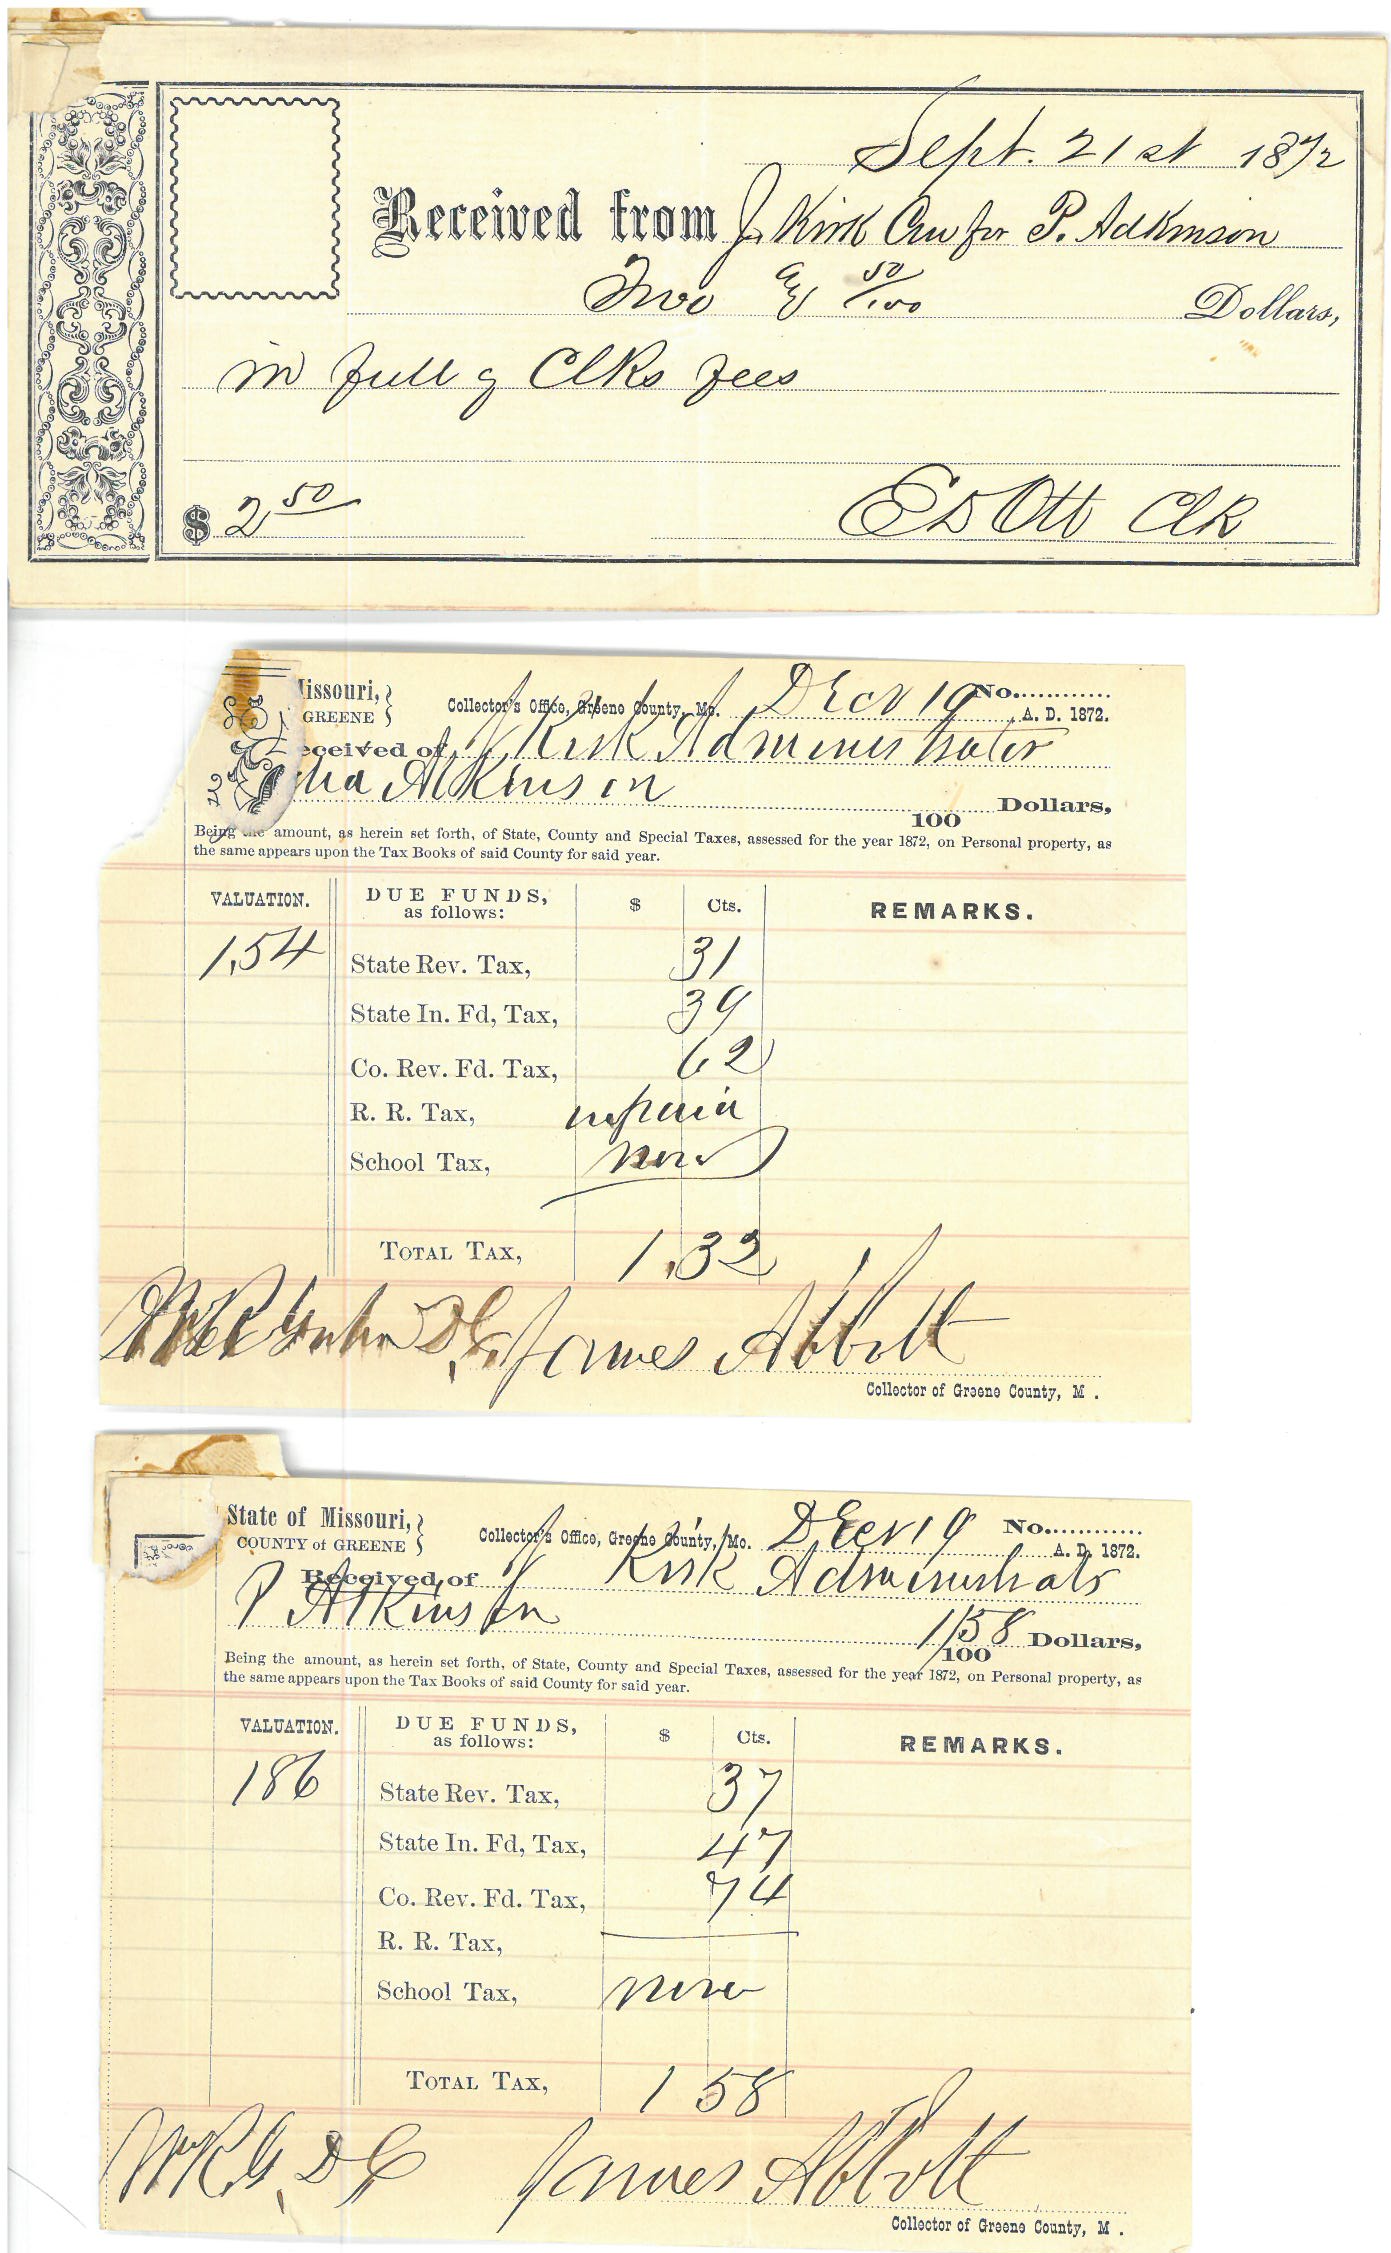 Sept. 21st 1872
Received from J. Kirk Cur for P. Adkinson
Two & 50/100 Dollars,
in full of Clks fees
$ 2 50 ED Ott Clk
Missouri,
GREENE
Collector's Office, Greene County, Mo. Decr 19 No............
A. D. 1872.
eceived of J Kirk Administrator
Atkinson
100 Dollars,
Being the amount, as herein set forth, of State, County and Special Taxes, assessed for the year 1872, on Personal property, as
the same appears upon the Tax Books of said County for said year.
VALUATION. DUE FUNDS, as follows: $ Cts. REMARKS.
1,54 State Rev. Tax, 31
State In. Fd, Tax, 39
Co. Rev. Fd. Tax, 62
R. R. Tax, unpaid
School Tax, none
TOTAL TAX, 1.32
D C James Abbott
Collector of Greene County, M .
State of Missouri,
COUNTY of GREENE
Collector's Office, Greene County, Mo. Decr 19 No............
A. D. 1872.
Received of J Kirk Administrator
P Atkinson
1/58
100 Dollars,
Being the amount, as herein set forth, of State, County and Special Taxes, assessed for the year 1872, on Personal property, as
the same appears upon the Tax Books of said County for said year.
VALUATION. DUE FUNDS, as follows: $ Cts. REMARKS.
186 State Rev. Tax, 37
State In. Fd, Tax, 47
Co. Rev. Fd. Tax, 74
R. R. Tax,
School Tax, none
TOTAL TAX, 1 58
WRG. D C James Abbott
Collector of Greene County, M .